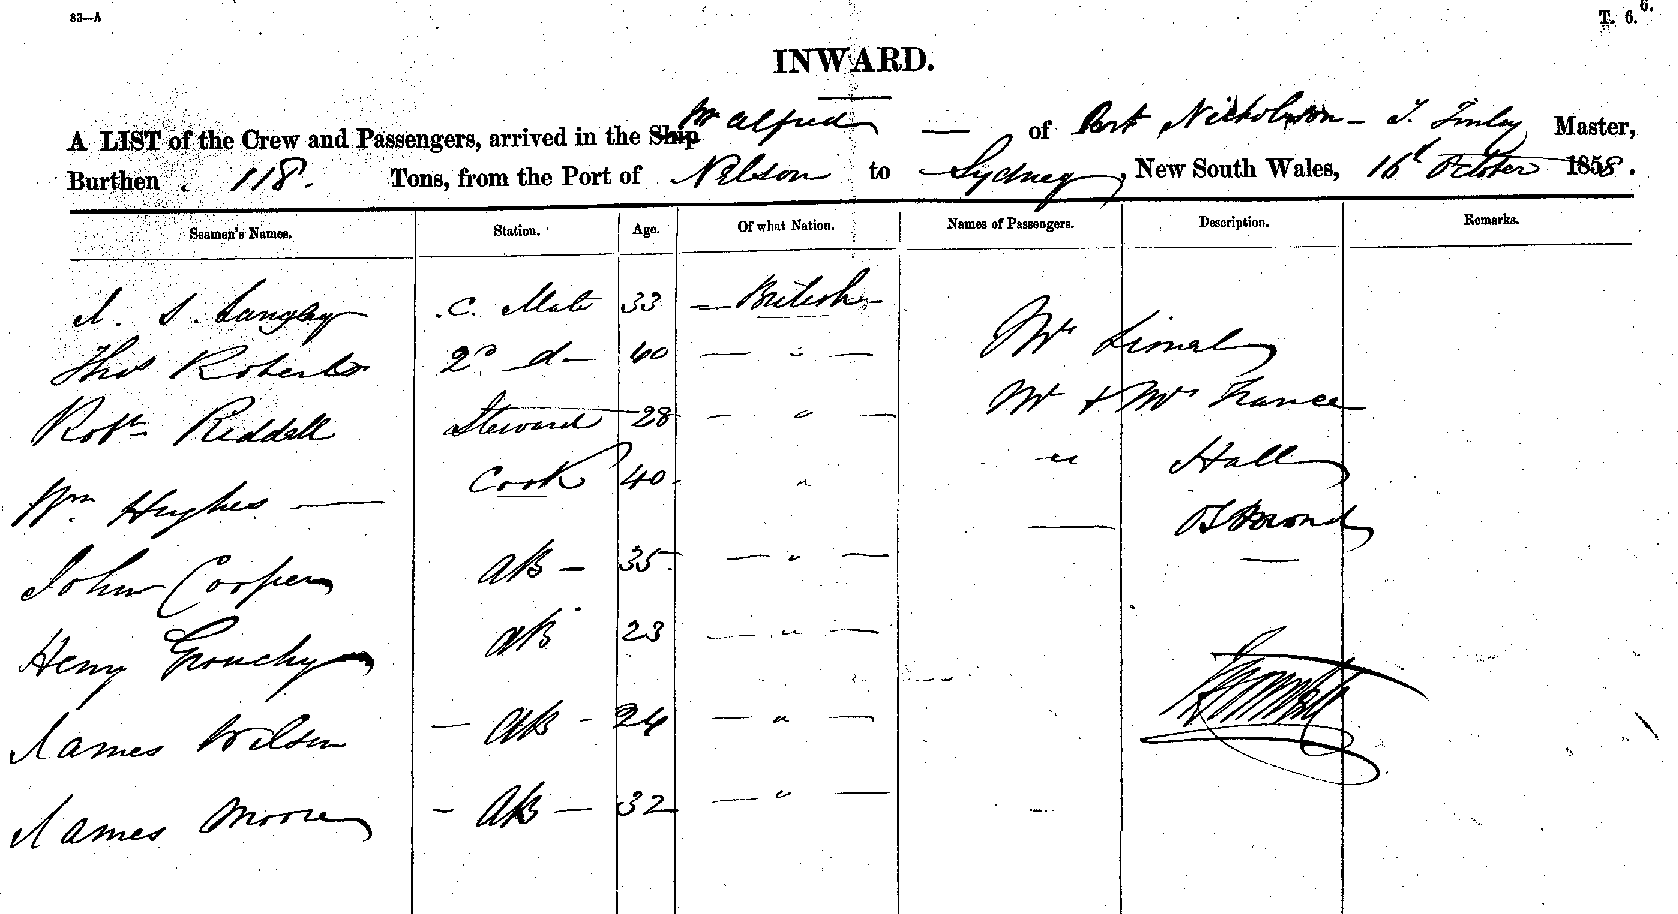 83—A
T. 6. 6.
INWARD.
A LIST of the Crew and Passengers, arrived in the Ship Wm Alfred — of Port Nicholson – T. Finlay Master,
Burthen 118. Tons, from the Port of Nelson to Sydney, New South Wales, 16th October 1858.
Seamen's Names. Station. Age. Of what Nation. Names of Passengers. Description. Remarks.
J. S. Langley C. Mate 33 — British —
Mr
Thos Roberts 2d d— 40 — " —
Mr & Mrs France
Robt Riddell Steward 28 — " —
" Hall
Wm Hughes — Cook 40 "
— Osmond
John Cooper AB — 35 — " —
Henry Grouchy AB 23 — " —
James Wilson — AB — 24 — " —
James Moore — AB — 32 — " —